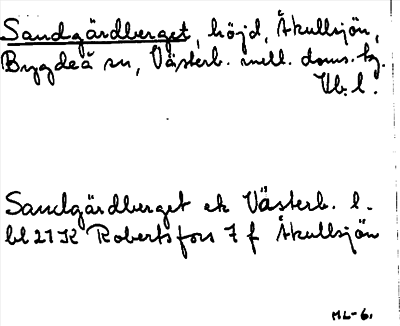 Sandgärdberget, höjd, Åkullsjön,
Bygdeå sn, Västerb. mell. doms. tg.
Vb. l.
Sandgärdberget ek Västerb. l.
bl 21 K Robertsfors 7 f Åkullsjön
ML-6.